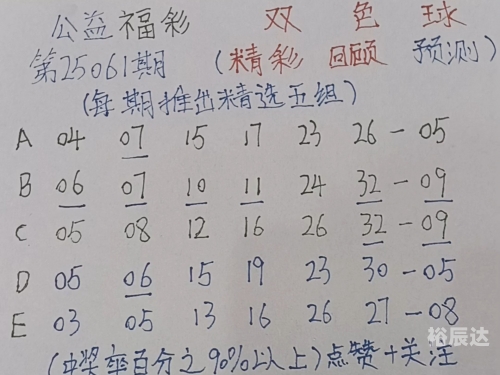 公益福彩 双色球
第25061期 (精彩回顾 预测)
(每期推出精选五组)
A 04 07 15 17 23 26-05
B 06 07 10 11 24 32-09
C 05 08 12 16 26 32-09
D 05 06 15 19 23 30-05
E 03 05 13 16 26 27-08
(中奖率百分之90%以上)点赞+关注
裕辰达